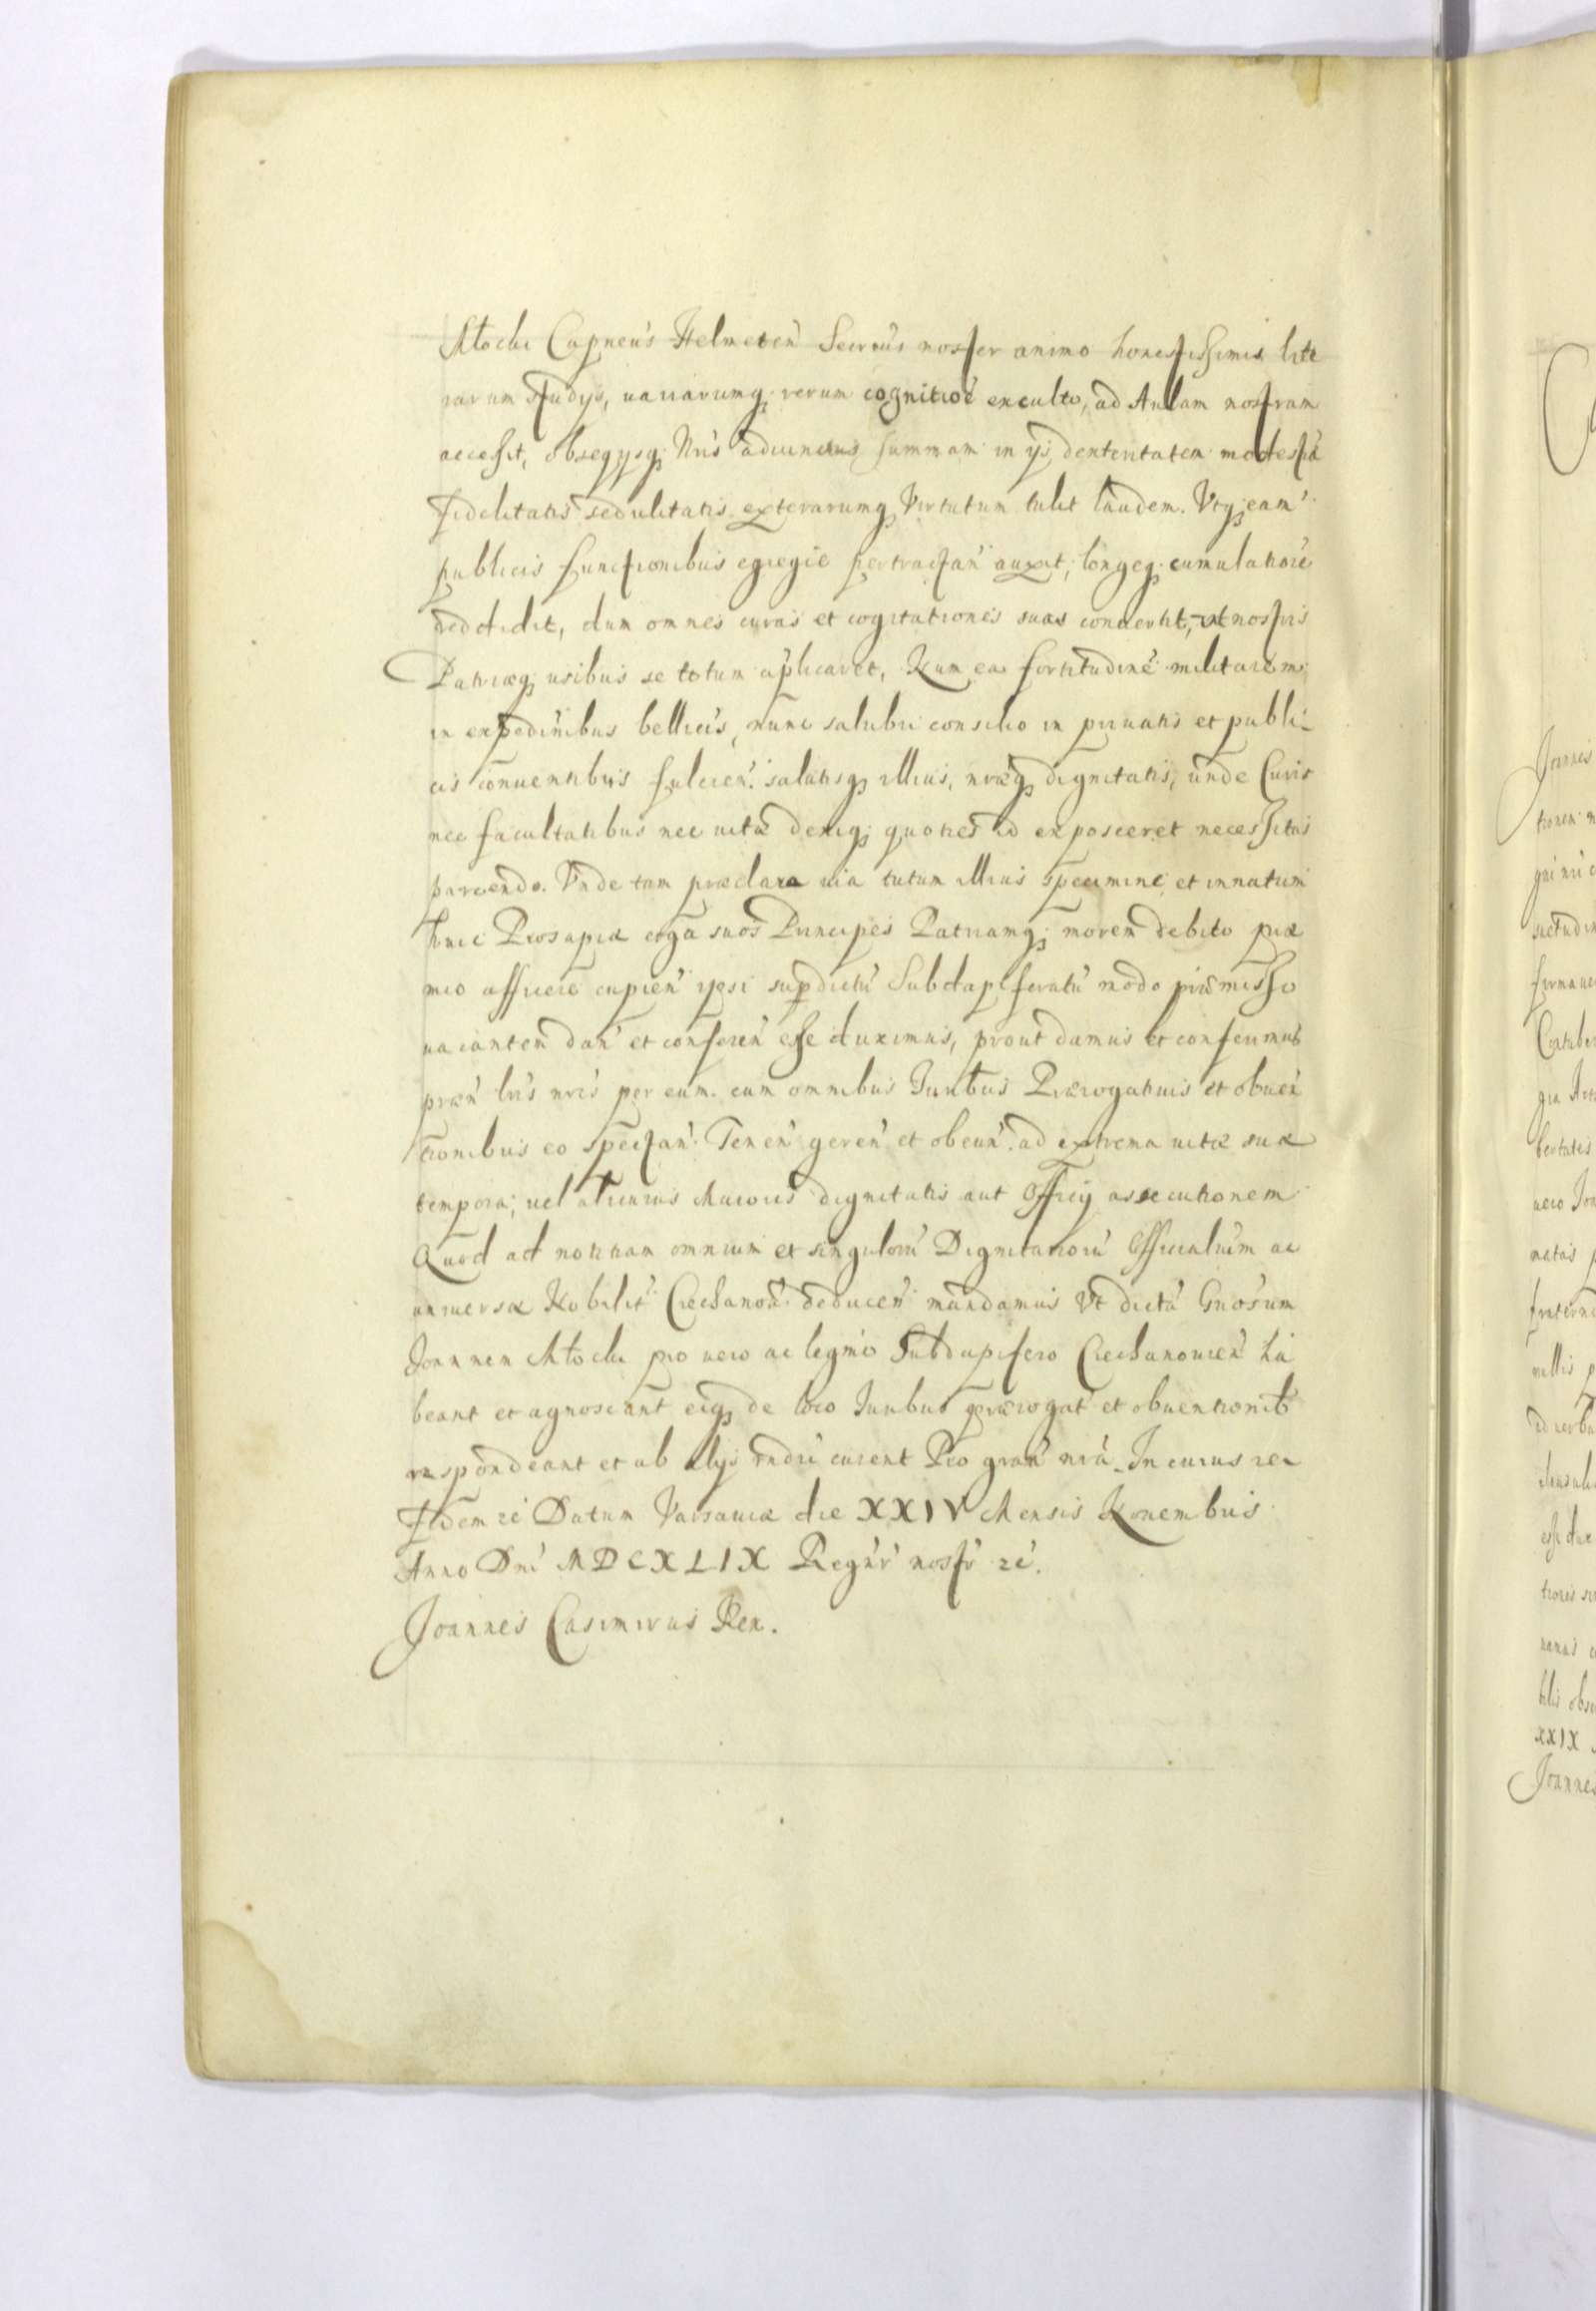 Młocki Capneus Helmeten Secrius noster animo honestissimis lite
rarum studys, uariarumq; rerum cognitioe exculto, ad Aulam nostram
accessit, obseqysq; Nris adiunctus summam in ys dexteritatem modestia
Fidelitatis sedulitatis exterarumq Virtutum tulit laudem. Vtq; eam
publicis functionibus egregie pertractan auxit, longeq; cumulatiore
reddidit, dum omnes curas et cogitationes suas conuertit, ut nostris
Patriæq; usibus se totum aplicaret, Num ea fortitudine militarem
in expedinibus bellicis, nunc salubri consilio in priuatis et publi-
cis conuentibus fulcien. salutisq illius, nræq dignitatis, unde Curis
nec facultatibus nec uitæ deniq; quoties id exposceret necessitas
parcendo. Vnde tam præclara uia tutum illius specimine, et innatum
huic Prosapiæ erga suos Principes Patriamq; morem debito præ
mio afficere cupien ipsi supdictu Subdapiferatu modo præmisso
uacantem dan et conferen esse duximus, prout damus et conferimus
præn lris nris per eum. cum omnibus Juribus Prærogatiuis et obuen
tionibus eo spectan. Tenen geren et obeun. ad extrema uitæ suæ
tempora, uel alterius Maioris dignitatis aut Officij assecutionem
Quod ad notitiam omnium et singuloru Dignitarioru Officialium ac
uniuersæ Nobilit Ciechanou. deducen mandamus Vt dictu Gnosum
Joannem Młocki pro uero ac legmo Subdapifero Ciechanouien ha
beant et agnoscant eiq de loco Juribus prærogat et obuentionib
respondeant et ab alijs rndri curent Pro gran nra. In cuius rei
Fidem rc Datum Varsauiæ die XXIV Mensis Nouembris
Anno Dni MDCXLIX Regnr nostr rc.
Joannes Casimirus Rex.